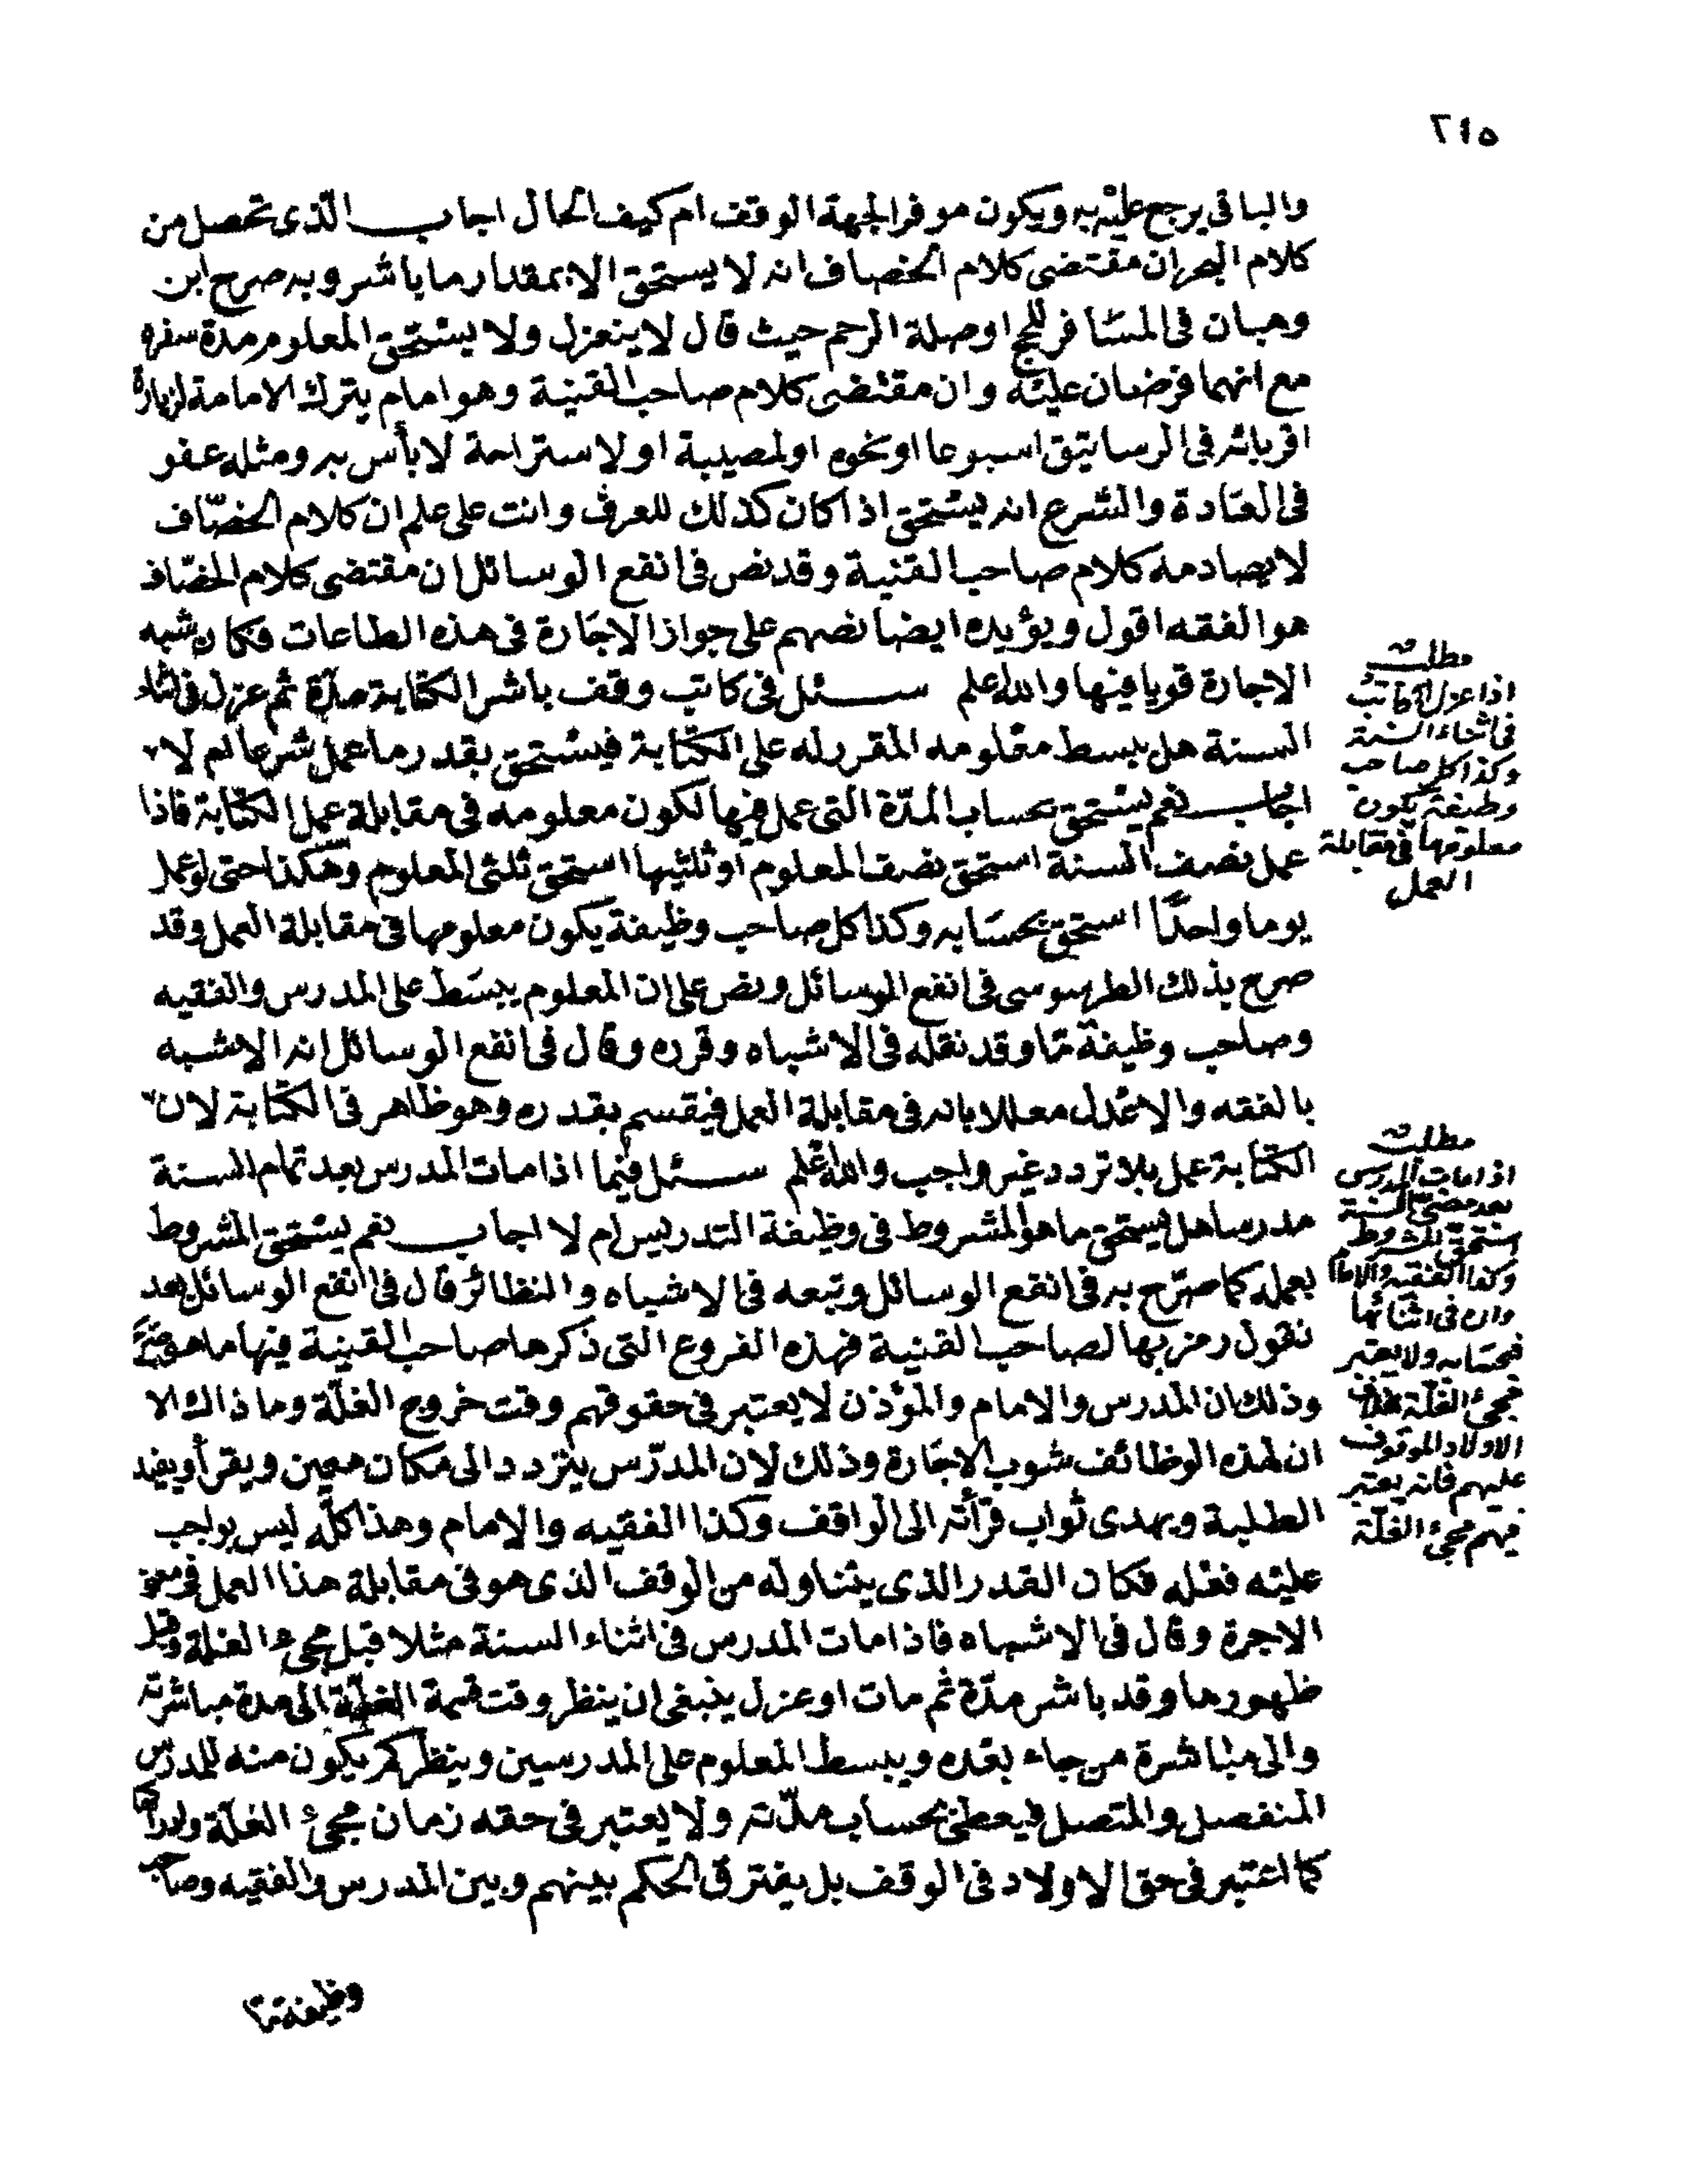 ٢٤٥
والباقى يرجع عليه به ويكون موفرا لجهة الوقف ام كيف الحال اجاب الذى تحصل من
كلام البحر ان مقتضى كلام الخصاف انه لا يستحق الا بمقدار ما باشر وبه صرح ابن
وهبان فى المسافر للحج او صلة الرحم حيث قال لا ينعزل ولا يستحق المعلوم مدة سفره
مع انهما فرضان عليه وان مقتضى كلام صاحب القنية وهو امام يترك الامامة لزيارة
اقربائه فى الرساتيق اسبوعا او نحوه او لمصيبة او لاستراحة لا بأس به ومثله عفو
فى العادة والشرع انه يستحق اذا كان كذلك للعرف وانت على علم ان كلام الخصّاف
لا يصادمه كلام صاحب القنية وقد نص فى انفع الوسائل ان مقتضى كلام الخصّاف
هو الفقه اقول ويؤيده ايضا نصهم على جواز الاجارة فى هذه الطاعات فكان شبه
الاجارة قويا فيها والله اعلم سئل فى كاتب وقف باشر الكتابة مدّة ثم عزل فى اثناء
السنة هل يبسط معلومه المقرر له على الكتابة فيستحق بقدر ما عمل شرعا ام لا
اجاب نعم يستحق بحساب المدّة التى عمل فيها لكون معلومه فى مقابلة عمل الكتابة فاذا
عمل نصف السنة استحق نصف المعلوم او ثلثيها استحق ثلثى المعلوم وهكذا حتى لو عمل
يوما واحدًا استحق بحسابه وكذا كل صاحب وظيفة يكون معلومها فى مقابلة العمل وقد
صرح بذلك الطرسوسى فى انفع الوسائل ونص على ان المعلوم يبسط على المدرس والفقيه
وصاحب وظيفة مّا وقد نقله فى الاشباه وقرره وقال فى انفع الوسائل انه الاشبه
بالفقه والاعدل معللا بانه فى مقابلة العمل فيقسم بقدره وهو ظاهر فى الكتابة لان
الكتابة عمل بلا تردد غير واجب والله اعلم سئل فيما اذا مات المدرس بعد تمام السنة
مدرسا هل يستحق ما هو المشروط فى وظيفة التدريس ام لا اجاب نعم يستحق المشروط
بعمله كما صرّح به فى انفع الوسائل وتبعه فى الاشباه والنظائر قال فى انفع الوسائل بعد
نقول رمز بها لصاحب القنية فهذه الفروع التى ذكرها صاحب القنية فيها ما هو
وذلك ان المدرس والامام والمؤذن لا يعتبر فى حقوقهم وقت خروج الغلّة وما ذاك الا
ان لهذه الوظائف شوب الاجارة وذلك لان المدرّس يتردد الى مكان معين ويقرأ ويفيد
الطلبة ويهدى ثواب قرأته الى الواقف وكذا الفقيه والامام وهذا كلّه ليس بواجب
عليه فعله فكان القدر الذى يتناوله من الوقف الذى هو فى مقابلة هذا العمل فى معنى
الاجرة وقال فى الاشباه فاذا مات المدرس فى اثناء السنة مثلا قبل مجىء الغلة وقبل
ظهورها وقد باشر مدّة ثم مات او عزل ينبغى ان ينظر وقت قسمة الغلّة الى مدة مباشرته
والى مباشرة من جاء بعده ويبسط المعلوم على المدرسين وينظر كم يكون منه للمدرّس
المنفصل والمتصل فيعطى بحساب مدّته ولا يعتبر فى حقه زمان مجىء الغلّة وادراكها
كما اعتبر فى حق الاولاد فى الوقف بل يفترق الحكم بينهم وبين المدرس والفقيه وصاحب
وظيفة ما
مطلب
اذا عزل الكاتب
فى اثناء السنة
وكذا كل صاحب
وظيفة يكون
معلومها فى مقابلة
العمل
مطلب
اذا مات المدرس
بعد مضىّ السنة
استحق المشروط
وكذا الفقيه والامام
وان فى اثنائها
فبحسابه ولا يعتبر
مجىء الغلّة بخلاف
الاولاد الموقوف
عليهم فانه يعتبر
فيهم مجىء الغلّة